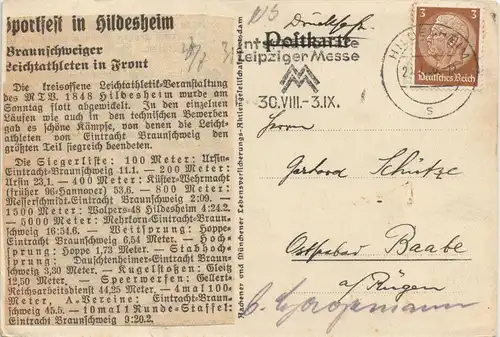 Sportfest in Hildesheim
Braunschweiger
Leichtathleten in Front
Die kreisoffene Leichtathletik-Veranstaltung
des MTV. 1848 Hildesheim wurde am
Sonntag flott abgewickelt. In den einzelnen
Läufen wie auch in den technischen Bewerben
gab es schöne Kämpfe, von denen die Leicht-
athleten von Eintracht Braunschweig den
größten Teil siegreich beendeten.
Die Siegerliste: 100 Meter: Ursin-
Eintracht-Braunschweig 11.1. — 200 Meter:
Ursin 23,1. — 400 Meter: Küster-Wehrmacht
(früher 96-Hannover) 53.6. — 800 Meter:
Messerschmidt-Eintracht Braunschweig 2:09. —
1500 Meter: Wolpers-48 Hildesheim 4:24.2.
— 5000 Meter: Mehrkorn-Eintracht-Braun-
schweig 16:54.6. — Weitsprung: Hoppe-
Eintracht Braunschweig 6,54 Meter. — Hoch-
sprung: Hoppe 1,73 Meter. — Stabhoch-
sprung: Dauschtenheimer-Eintracht-Braun-
schweig 3,30 Meter. — Kugelstoßen: Gleitz
12,50 Meter. — Speerwerfen: Gellert-
Reichsarbeitsdienst 54,25 Meter. — 4mal 100
Meter, A.-Vereine: Eintracht-Braun-
schweig 45.5. — 10mal 1 Runde-Staffel:
Eintracht Braunschweig 9:20.2.
Aachener und Münchener Lebensversicherungs-Aktiengesellschaft
Drucksache
Postkarte
Leipziger Messe
30.VIII.-3.IX.
3 3
Deutsches Reich
s
Herrn
Gerhard Schütze
Ostseebad Baabe
a/Rügen